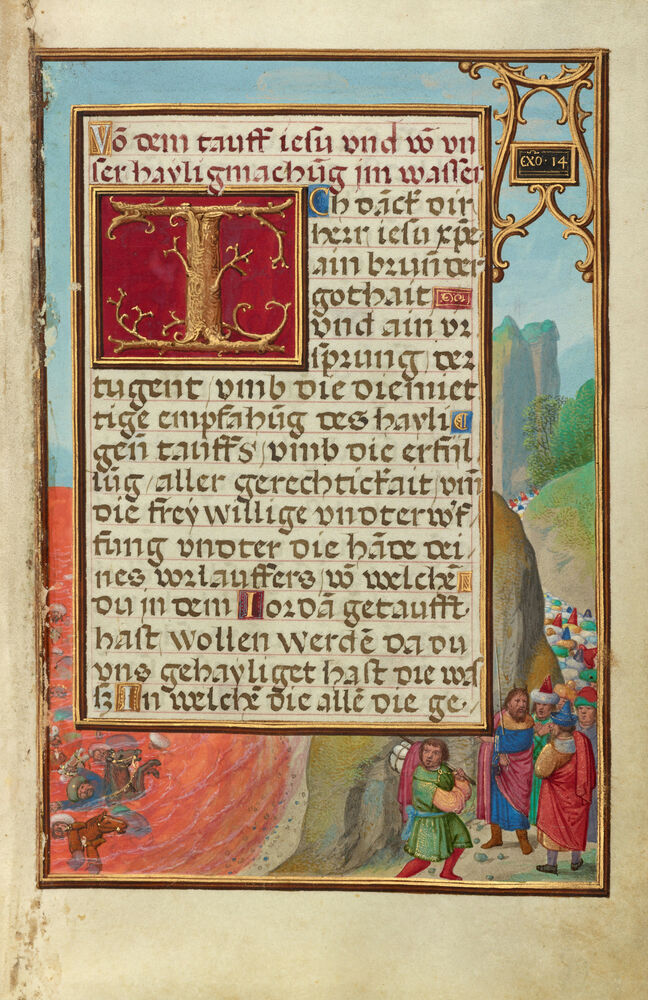 Võ dem tauff iesu vnd võ vn
ser hayligmachũg im wasser
EXO · 14
I Ch dãck dir
herr iesu xp̃e
ain brun der
gothait
vnd ain vr
sprung der
tugent / vmb die diemiet
tige empfahũg des hayli
gen tauffs / vmb die erfül
lũg / aller gerechtickait / vnd
die freywillige vndterw̃f
fung vndter die hãde dei,
nes vorlauffers / võ welchẽ
du in dem Iordã getaufft
hast wollen werdẽ da du
vns gehayliget hast die was
ß In welchẽ die allẽ die ge·